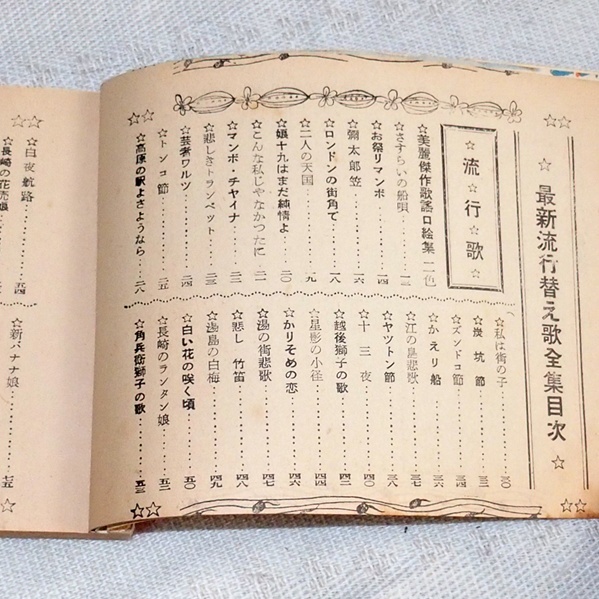 ☆最新流行替え歌全集目次☆
☆流☆行☆歌☆
☆美麗傑作歌謡口絵集 二色
☆さすらいの船唄……一三
☆お祭りマンボ……一四
☆彌太郎笠……一六
☆ロンドンの街角で……一八
☆二人の天国……一九
☆娘十九はまだ純情よ……二〇
☆こんな私じゃなかったに……二一
☆マンボ・チャイナ……二三
☆悲しきトランペット……二三
☆芸者ワルツ……二四
☆トンコ節……二五
☆高原の駅よさようなら……二八
☆私は街の子……三〇
☆炭坑節……三二
☆ズンドコ節……三四
☆かえり船……三三
☆江の島悲歌……三七
☆ヤットン節……三八
☆十三夜……四〇
☆越後獅子の歌……四二
☆星影の小径……四四
☆かりそめの恋……四六
☆湯の街悲歌……四七
☆悲し竹笛……四八
☆湯島の白梅……四九
☆白い花の咲く頃……五〇
☆長崎のランタン娘……五二
☆角兵衛獅子の歌……五三
☆白夜航路……五四
☆長崎の花売娘
☆新バナナ娘……七五